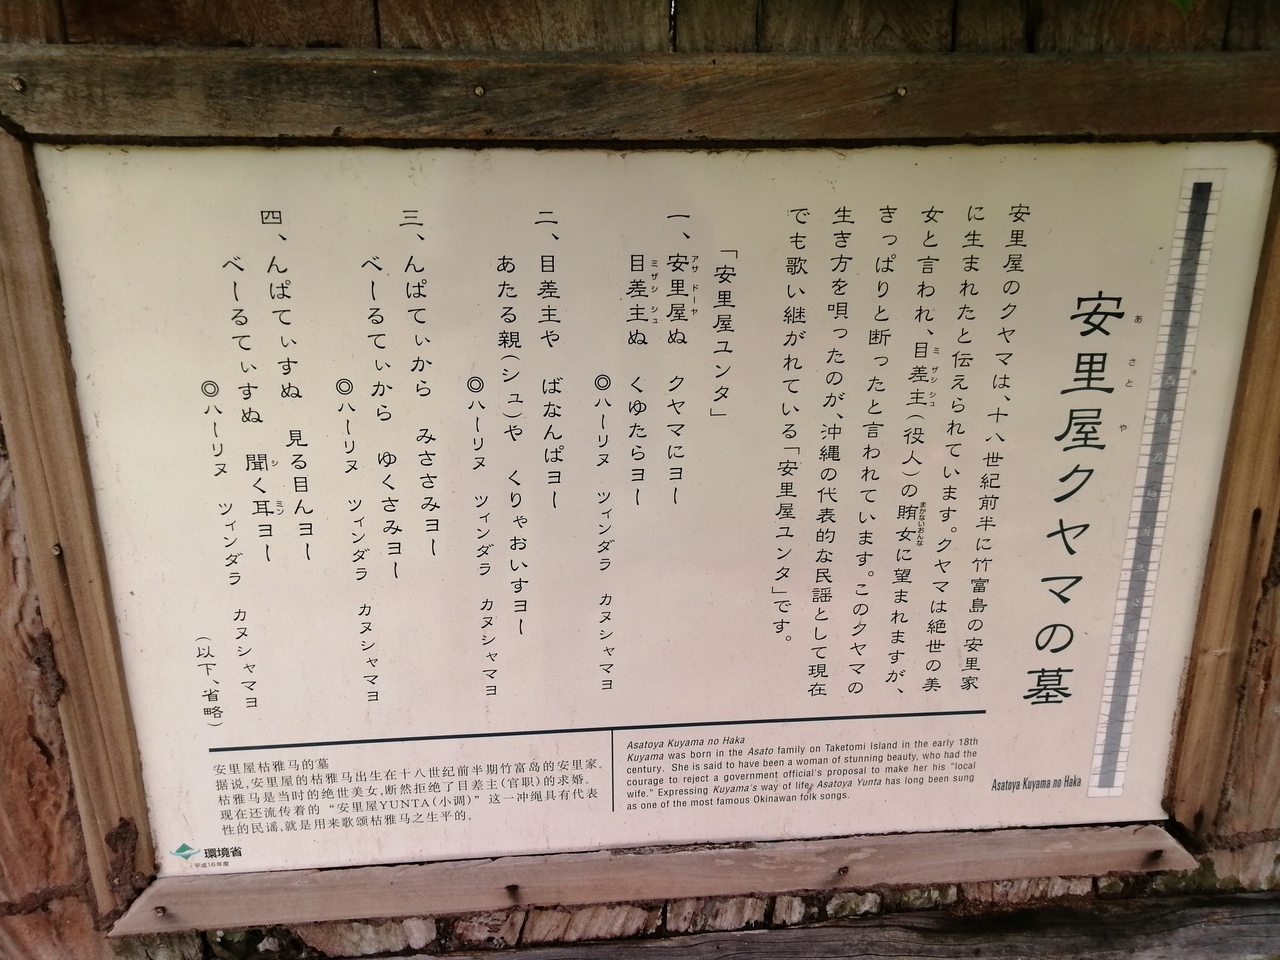 安里屋クヤマの墓
あさとや
Asatoya Kuyama no Haka
安里屋のクヤマは、十八世紀前半に竹富島の安里家
に生まれたと伝えられています。クヤマは絶世の美
女と言われ、目差主（役人）の賄女に望まれますが、
ミザシシュ
まかないおんな
きっぱりと断ったと言われています。このクヤマの
生き方を唄ったのが、沖縄の代表的な民謡として現在
でも歌い継がれている「安里屋ユンタ」です。
「安里屋ユンタ」
一、安里屋ぬ クヤマにヨー
アサドーヤ
目差主ぬ くゆたらヨー
ミザシシュ
◎ハーリヌ ツィンダラ カヌシャマヨ
二、目差主や ばなんぱヨー
あたる親（シュ）や くりゃおいすヨー
◎ハーリヌ ツィンダラ カヌシャマヨ
三、んぱてぃから みささみヨー
べーるてぃから ゆくさみヨー
◎ハーリヌ ツィンダラ カヌシャマヨ
四、んぱてぃすぬ 見る目んヨー
べーるてぃすぬ 聞く耳ヨー
シ ミン
◎ハーリヌ ツィンダラ カヌシャマヨ
（以下、省略）
Asatoya Kuyama no Haka
Kuyama was born in the Asato family on Taketomi Island in the early 18th
century. She is said to have been a woman of stunning beauty, who had the
courage to reject a government official's proposal to make her his "local
wife." Expressing Kuyama's way of life, Asatoya Yunta has long been sung
as one of the most famous Okinawan folk songs.
安里屋枯雅马的墓
据说,安里屋的枯雅马出生在十八世纪前半期竹富岛的安里家.
枯雅马是当时的绝世美女,断然拒绝了目差主(官职)的求婚.
现在还流传着的 "安里屋YUNTA(小调)" 这一冲绳具有代表
性的民谣,就是用来歌颂枯雅马之生平的.
環境省
平成16年度